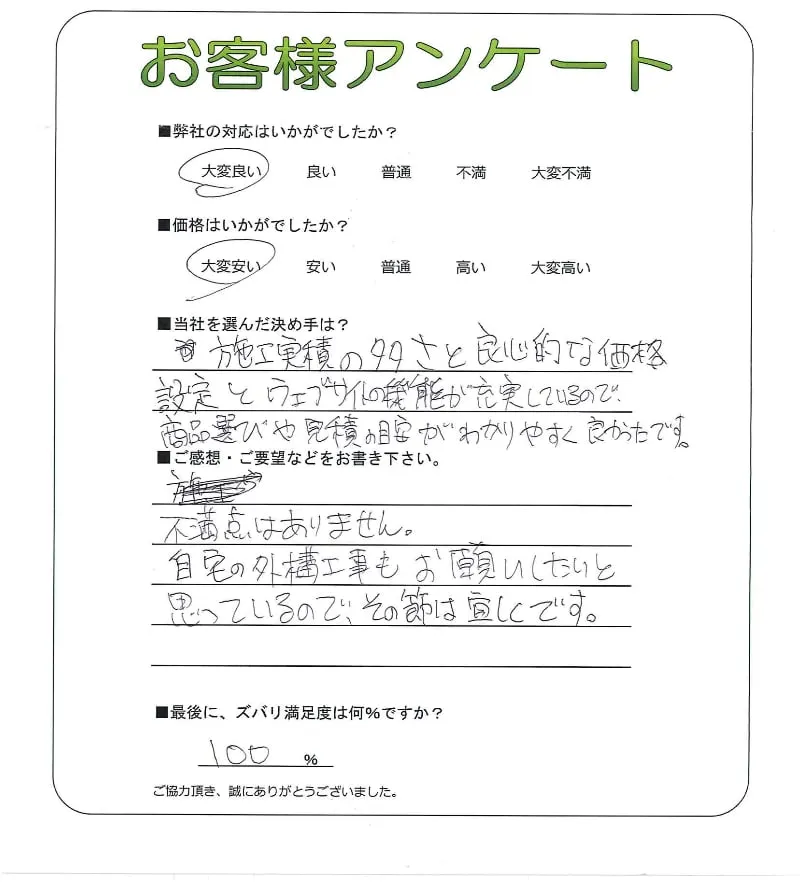 お客様アンケート
■弊社の対応はいかがでしたか？
大変良い 良い 普通 不満 大変不満
■価格はいかがでしたか？
大変安い 安い 普通 高い 大変高い
■当社を選んだ決め手は？
施工実積の多さと良心的な価格
設定とウェブサイトの機能が充実しているので、
商品選びや見積の目安がわかりやすく良かったです。
■ご感想・ご要望などをお書き下さい。
不満点はありません。
自宅の外構工事もお願いしたいと
思っているので、その節は宜しくです。
■最後に、ズバリ満足度は何％ですか？
100 ％
ご協力頂き、誠にありがとうございました。